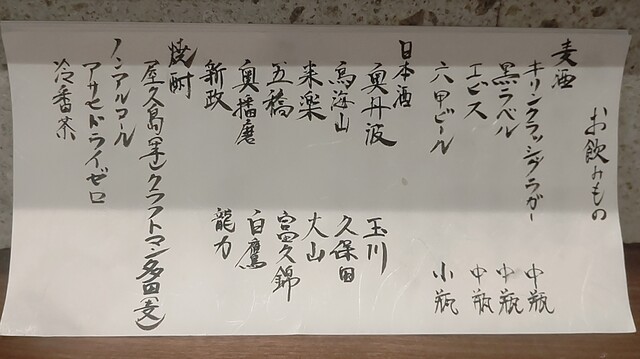 お飲みもの
麦酒
キリンクラッシクラガー 中瓶
黒ラベル 中瓶
エビス 中瓶
六甲ビール 小瓶
日本酒
奥丹波 玉川
鳥海山 久保田
来楽 大山
五稿 富久錦
奥播磨 白鷹
新政 龍力
焼酎
屋久島(芋)クラフトマン多田(麦)
ノンアルコール
アサヒドライゼロ
冷番茶